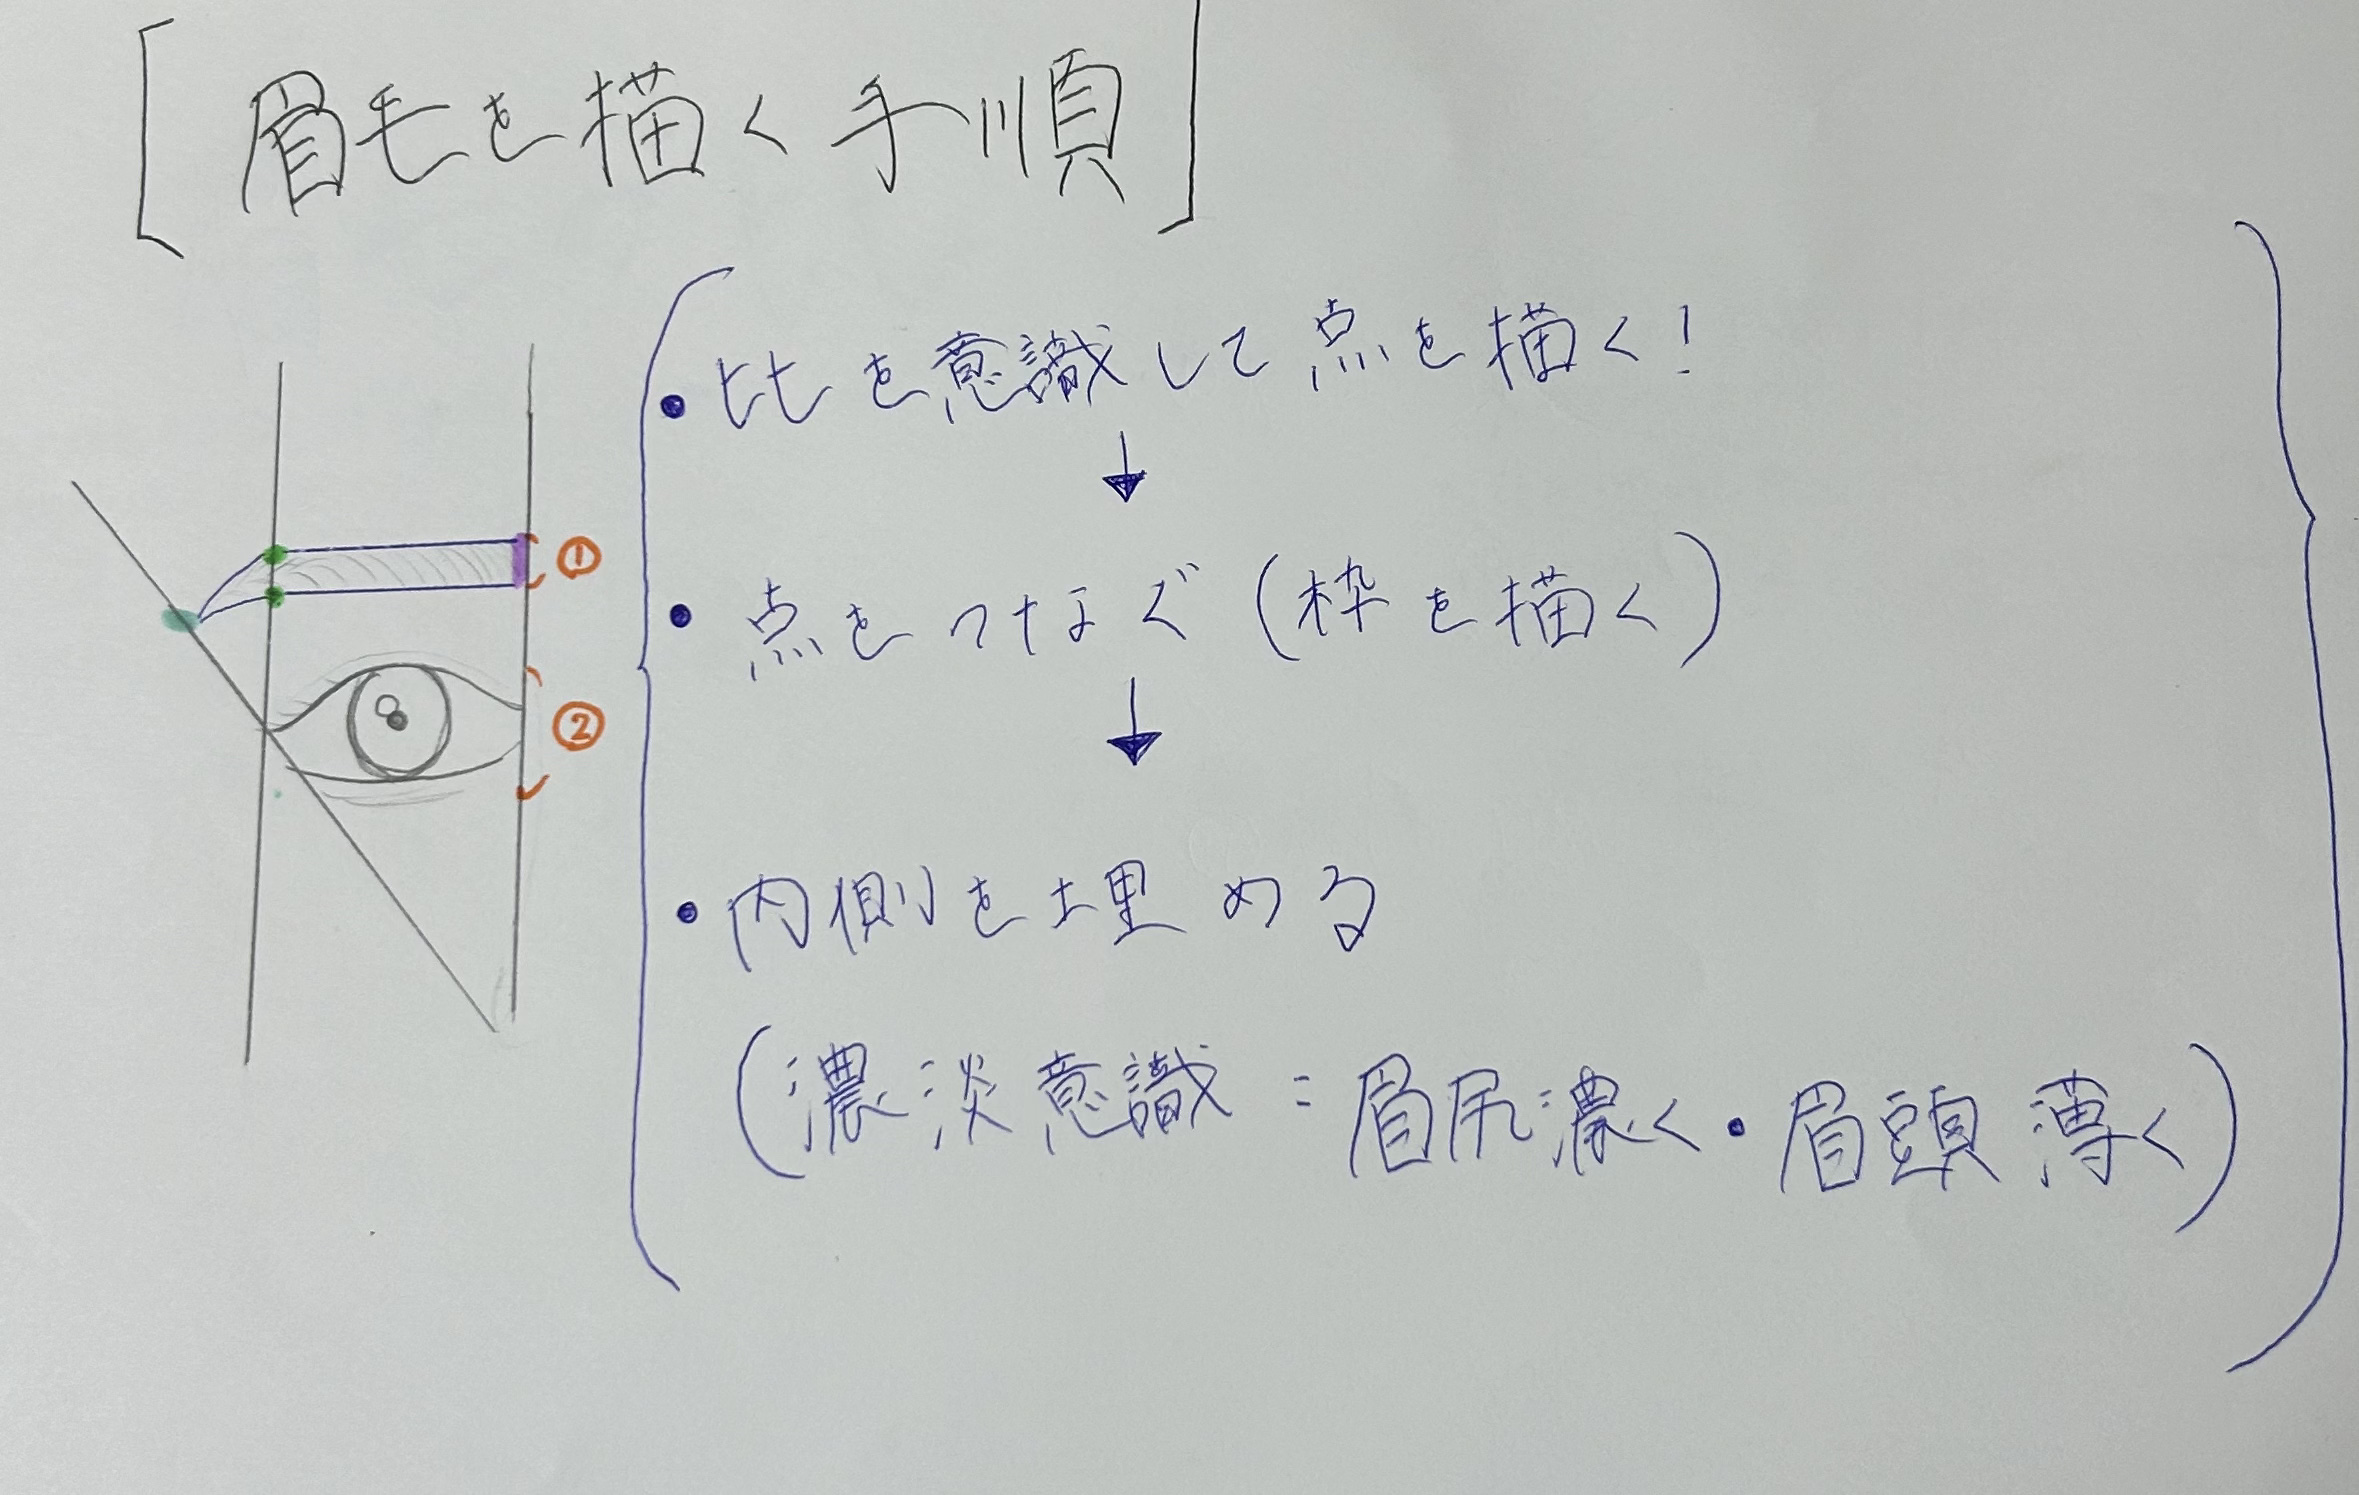 [眉毛を描く手順]
・比を意識して点を描く!
↓
・点をつなぐ(枠を描く)
↓
・内側を埋める
(濃淡意識:眉尻濃く・眉頭薄く)
①
②